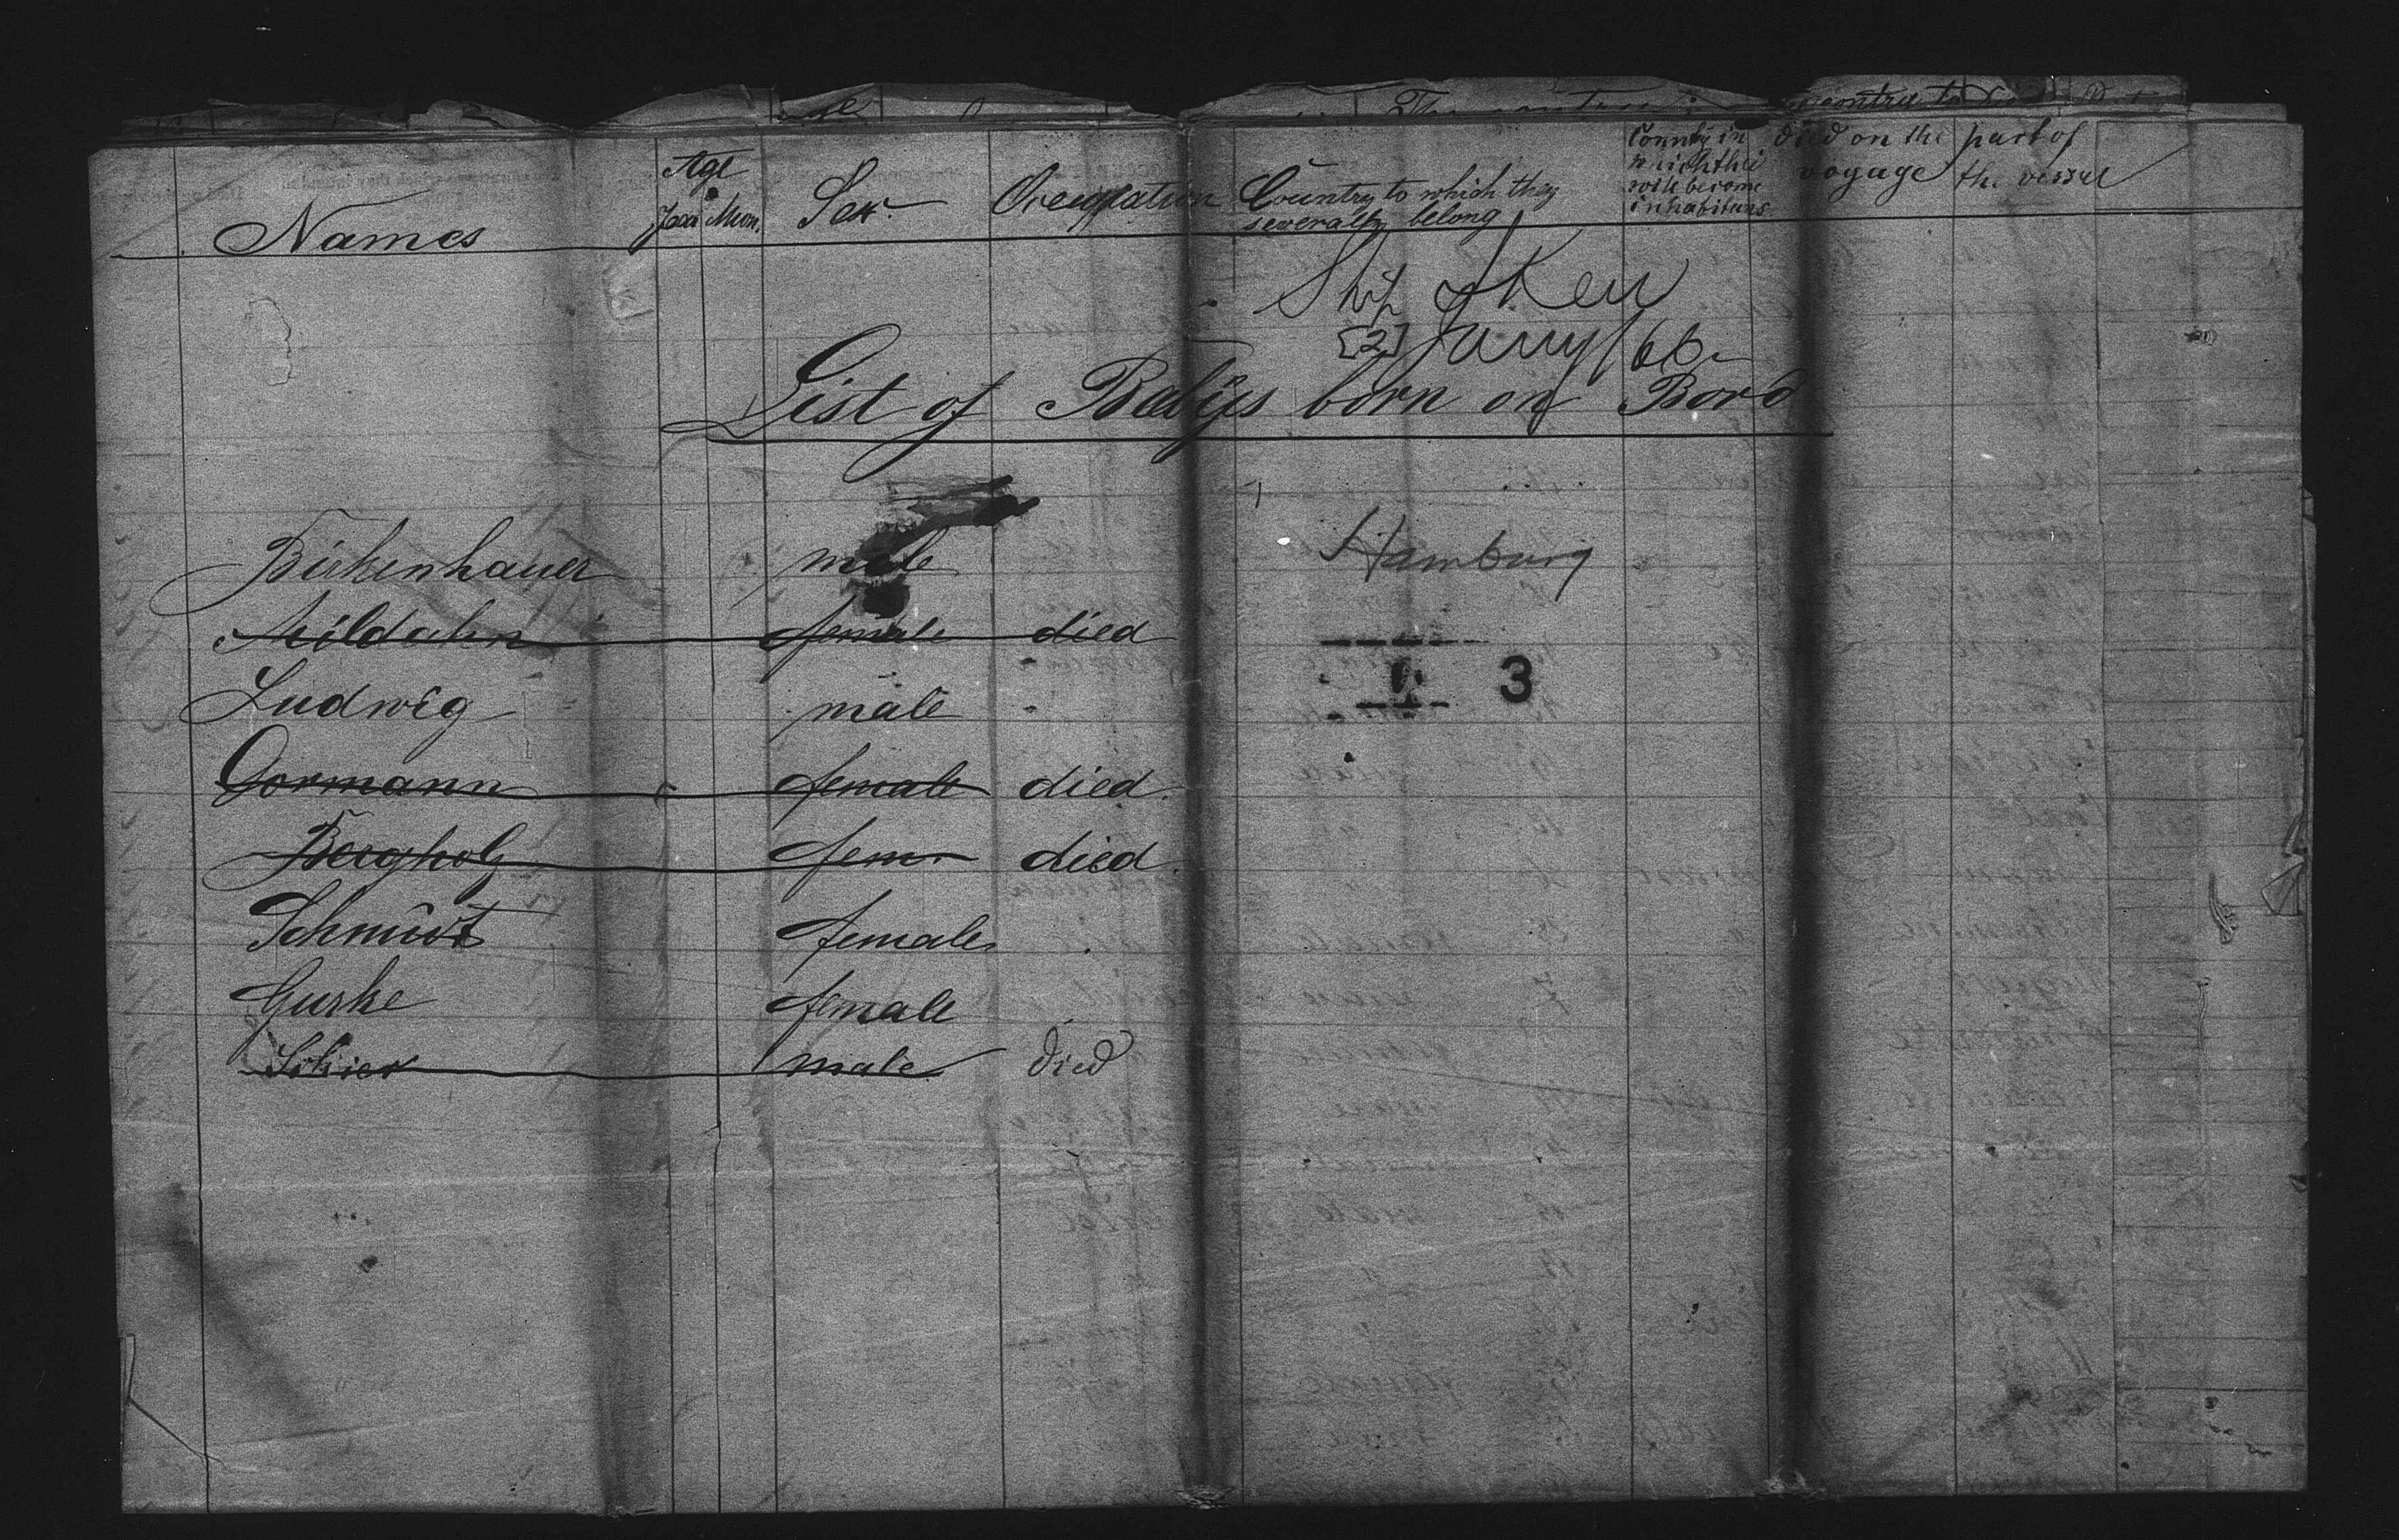 Names
Age
Year Mon.
Sex.
Occupation
Country to which they
severally belong
Country in
which they
will become
inhabitans
died on the
voyage
part of
the vessel
Ship
[2]
List of Babys born on Bord
Birkenhauer male Hamburg
Mildahn female died
3
Ludwig male
Gormann female died.
Bergholz fem died
Schmidt female
Guske female
male died